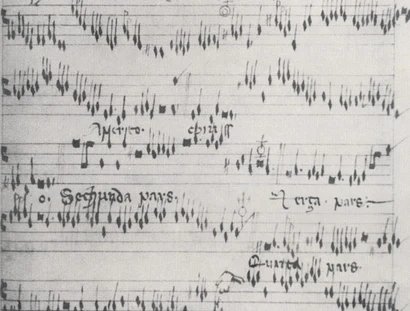 Aperto. chiuss
o. Sechunda pars. Terça pars.
Quarta pars.